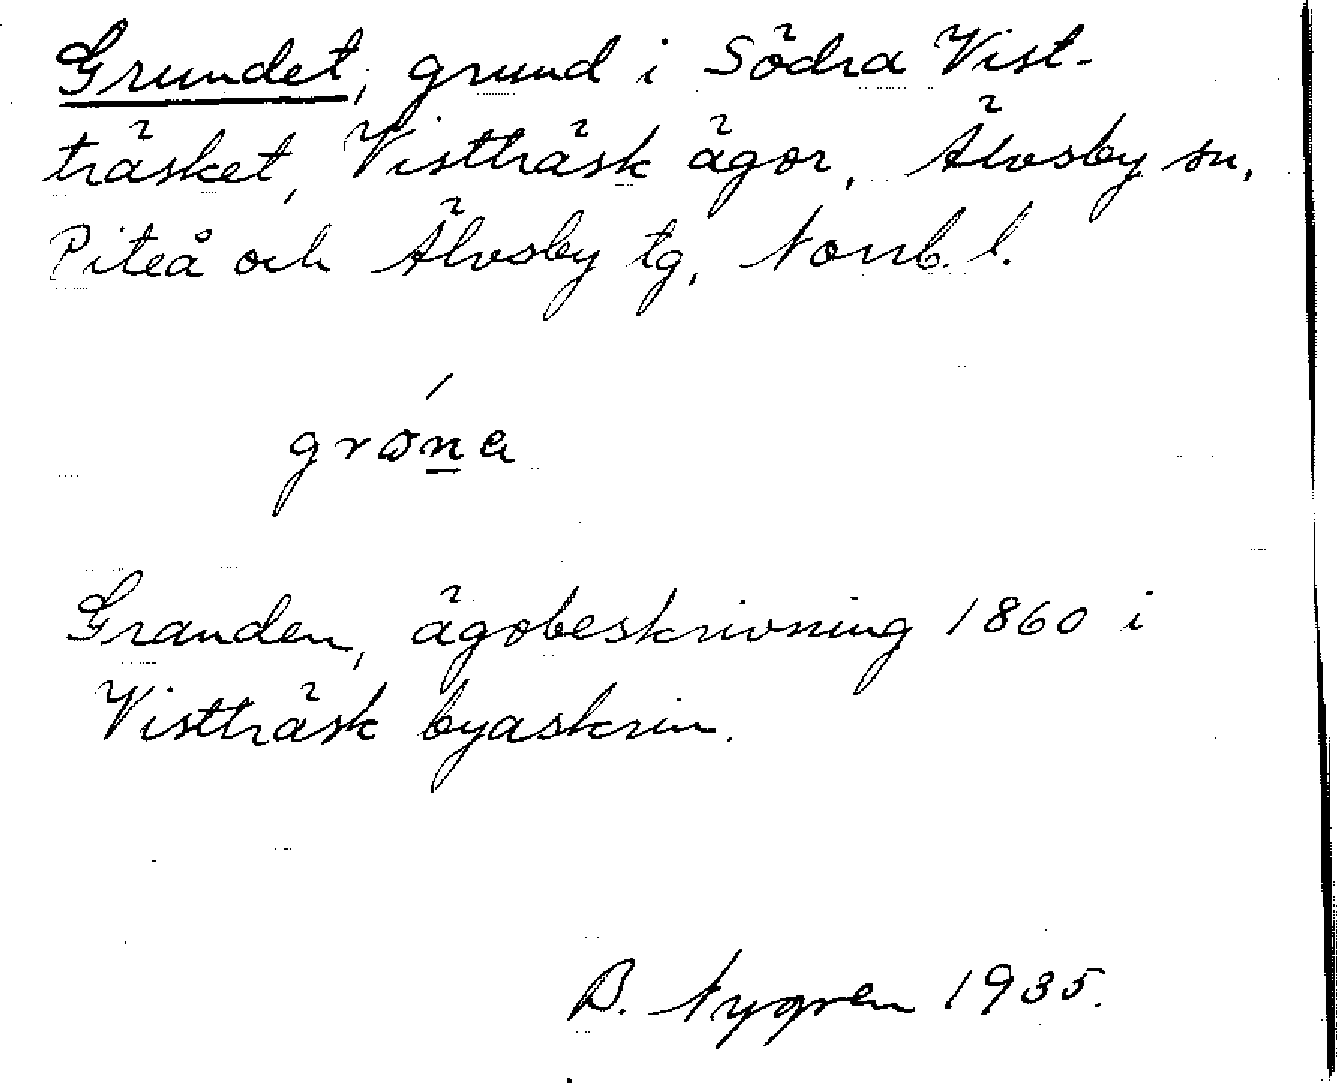 Grundet, grund i Södra Vist-
träsket, Vistträsk ägor, Älvsby sn,
Piteå och Älvsby tg, Norrb. l.
grøn̲a
Granden, ägobeskrivning 1860 i
Vistträsk byaskrin.
B. Nygren 1935.